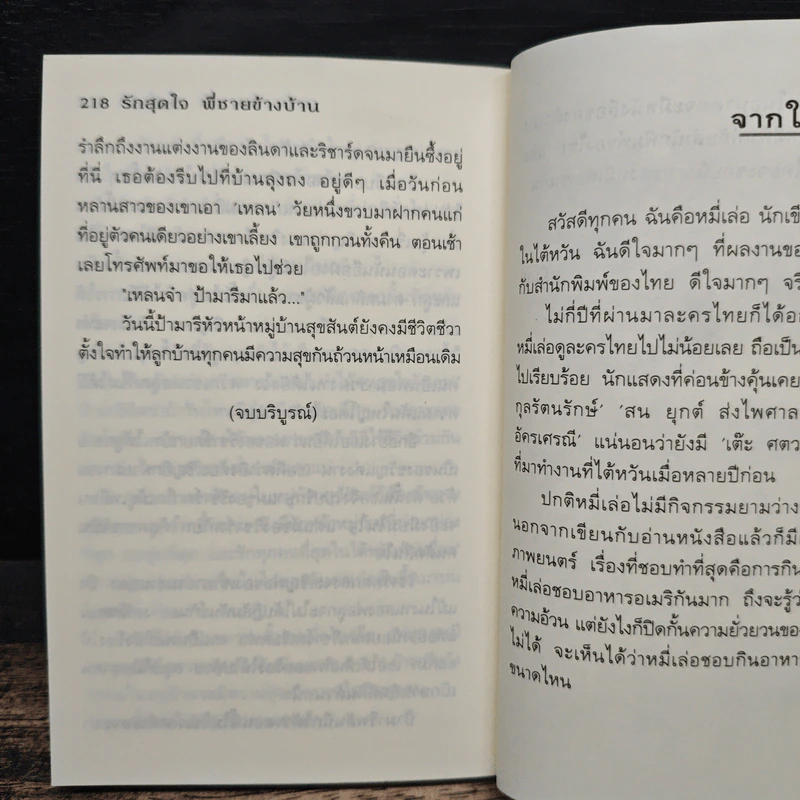 218 รักสุดใจ พี่ชายข้างบ้าน
รำลึกถึงงานแต่งงานของลินดาและริชาร์ดจนมายืนซึ้งอยู่
ที่นี่ เธอต้องรีบไปที่บ้านลุงถง อยู่ดีๆ เมื่อวันก่อน
หลานสาวของเขาเอา 'เหลน' วัยหนึ่งขวบมาฝากคนแก่
ที่อยู่ตัวคนเดียวอย่างเขาเลี้ยง เขาถูกกวนทั้งคืน ตอนเช้า
เลยโทรศัพท์มาขอให้เธอไปช่วย
"เหลนจ๋า ป้ามารีมาแล้ว..."
วันนี้ป้ามารีหัวหน้าหมู่บ้านสุขสันต์ยังคงมีชีวิตชีวา
ตั้งใจทำให้ลูกบ้านทุกคนมีความสุขกันถ้วนหน้าเหมือนเดิม
(จบบริบูรณ์)
จากใ
สวัสดีทุกคน ฉันคือหมี่เล่อ นักเขี
ในไต้หวัน ฉันดีใจมากๆ ที่ผลงานขอ
กับสำนักพิมพ์ของไทย ดีใจมากๆ จริ
ไม่กี่ปีที่ผ่านมาละครไทยก็ได้ออ
หมี่เล่อดูละครไทยไปไม่น้อยเลย ถือเป็น
ไปเรียบร้อย นักแสดงที่ค่อนข้างคุ้นเคย
กุลรัตนรักษ์' 'สน ยุกต์ ส่งไพศาล
อัครเศรณี' แน่นอนว่ายังมี 'เต๊ะ ศตว
ที่มาทำงานที่ไต้หวันเมื่อหลายปีก่อน
ปกติหมี่เล่อไม่มีกิจกรรมยามว่าง
นอกจากเขียนกับอ่านหนังสือแล้วก็มี
ภาพยนตร์ เรื่องที่ชอบทำที่สุดคือการกิน
หมี่เล่อชอบอาหารอเมริกันมาก ถึงจะรู้ว่
ความอ้วน แต่ยังไงก็ปิดกั้นความยั่วยวนขอ
ไม่ได้ จะเห็นได้ว่าหมี่เล่อชอบกินอาหา
ขนาดไหน